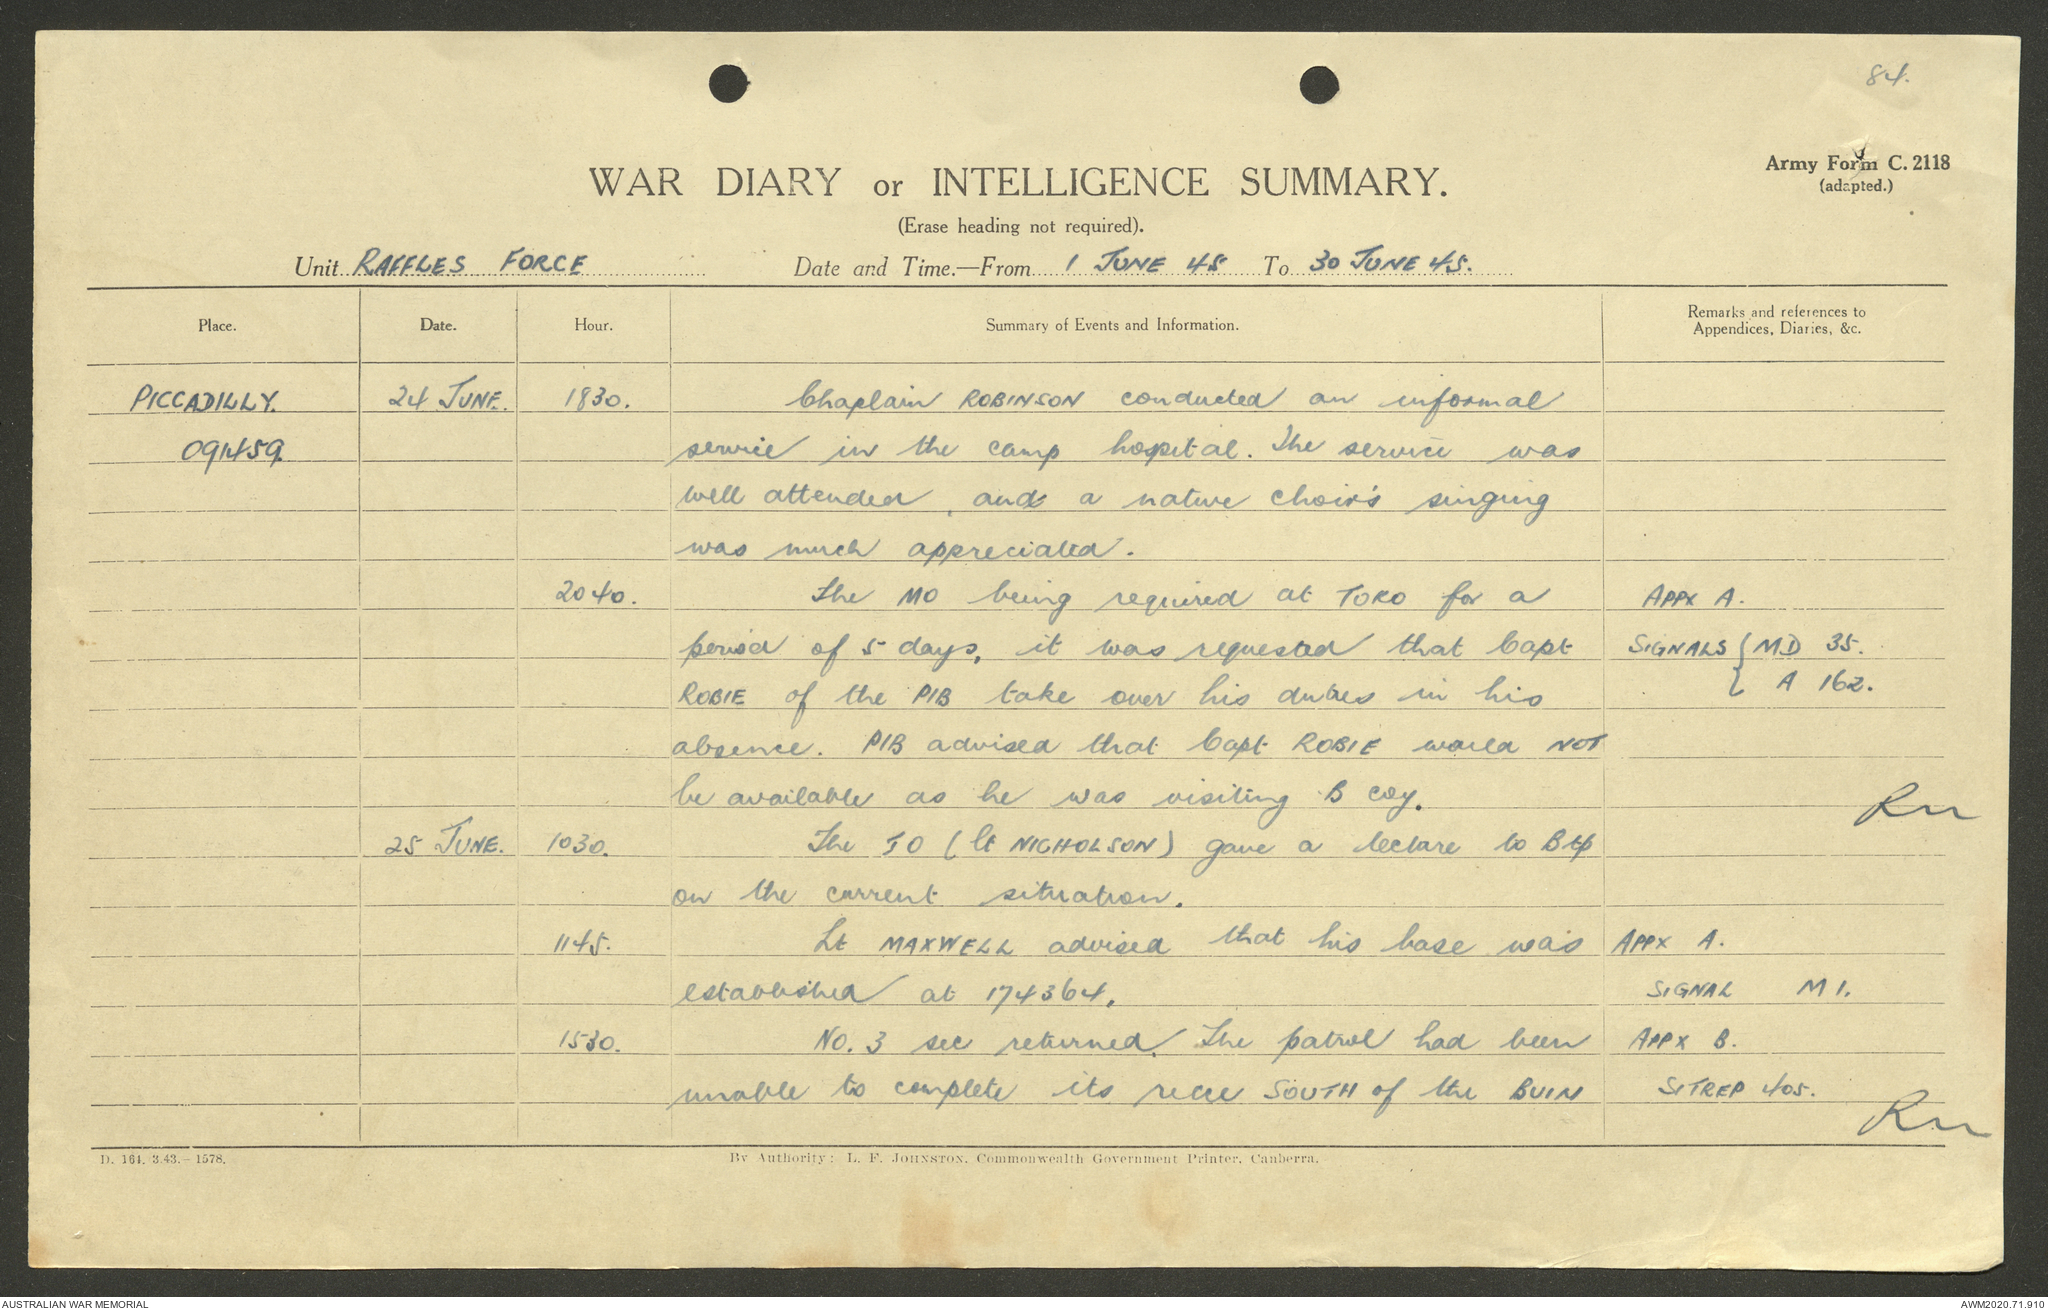 84.
Army Form C. 2118
(adapted.)
WAR DIARY or INTELLIGENCE SUMMARY.
(Erase heading not required).
Unit RAFFLES FORCE Date and Time.—From 1 JUNE 45 To 30 JUNE 45.
Place. Date. Hour. Summary of Events and Information. Remarks and references to Appendices, Diaries, &c.
PICCADILLY. 24 JUNE. 1830. Chaplain ROBINSON conducted an informal
091459. service in the camp hospital. The service was
well attended, and a native choir's singing
was much appreciated.
2040. The MO being required at TOKO for a APPX A.
period of 5 days, it was requested that Capt SIGNALS { MD 35.
ROBIE of the PIB take over his duties in his A 162.
absence. PIB advised that Capt ROBIE would NOT
be available as he was visiting B coy.
25 JUNE. 1030. The IO (Lt NICHOLSON) gave a lecture to B tp
on the current situation.
1145. Lt MAXWELL advised that his base was APPX A.
established at 174364. SIGNAL M1.
1530. No. 3 sec returned. The patrol had been APPX B.
unable to complete its recce SOUTH of the BUIN SITREP 405.
D. 164. 3.43.—1578. By Authority: L. F. JOHNSTON, Commonwealth Government Printer, Canberra.
AUSTRALIAN WAR MEMORIAL AWM2020.71.910